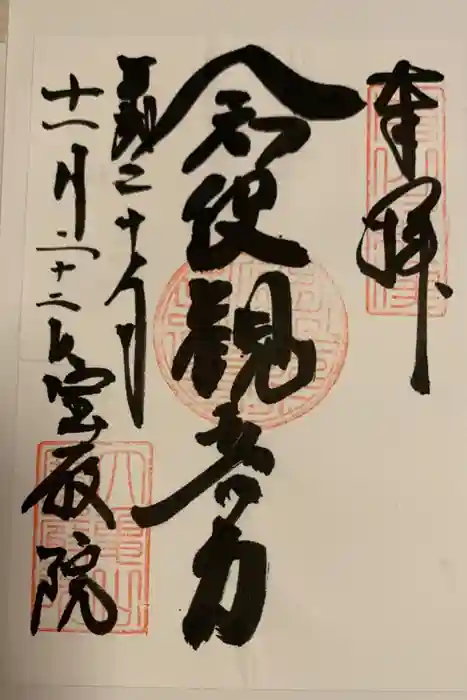 奉拝
念彼観音力
平成二十八年
十一月二十二日 宝厳院
大亀山